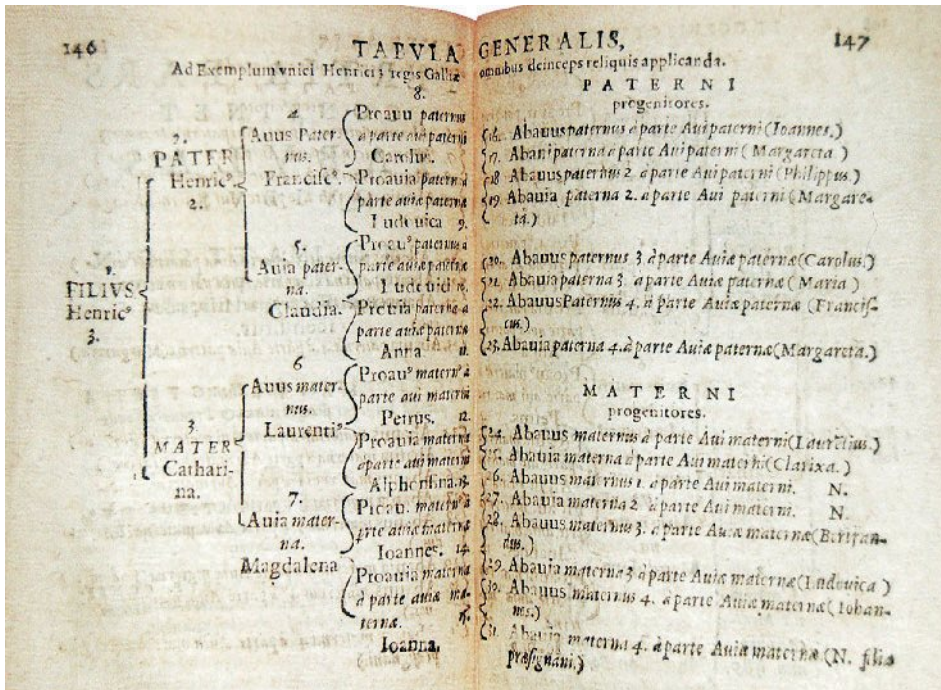 146
TABVLA GENERALIS,
147
Ad Exemplum vnici Henrici 3 regis Galliæ
omnibus deinceps reliquis applicanda.
1.
FILIVS
Henric⁹
3.
2.
PATER
Henric⁹.
2.
3.
MATER
Cathari-
na.
4.
Auus Pater-
nus.
Francisc⁹.
5.
Auia pater-
na.
Claudia.
6
Auus mater-
nus.
Laurenti⁹
7.
Auia mater-
na.
Magdalena
8.
Proauu paternus
à parte aui paterni
Carolus.
Proauia paterna
parte aui paterni
Ludouica 9.
Proau⁹ paternus à
parte auiæ paternæ
10.
Proauia paterna à
parte auiæ paternæ
Anna 11.
Proau⁹ matern⁹ à
parte aui materni
Petrus. 12.
Proauia materna
à parte aui materni
Alphonsina. 13.
matern⁹ à
parte auiæ maternæ
Ioannes. 14.
Proauia materna
à parte auiæ ma-
ternæ. 15.
Ioanna.
PATERNI
progenitores.
16. Abauus paternus à parte Aui paterni (Ioannes.)
17. Abauia paterna à parte Aui paterni (Margareta)
18 Abauus paternus 2. à parte Aui paterni (Philippus.)
19. Abauia paterna 2. à parte Aui paterni (Margare-
ta.)
20. Abauus paternus 3. à parte Auiæ paternæ (Carolus.)
21. Abauia paterna 3. à parte Auiæ paternæ (Maria)
22. Abauus Paternus 4. à parte Auiæ paternæ (Francis-
cus.)
23. Abauia paterna 4. à parte Auiæ paternæ (Margareta.)
MATERNI
progenitores.
24. Abauus maternus à parte Aui materni (Laurētius.)
25. Abauia materna à parte Aui materni (Clarixa.)
26. Abauus maternus 1. à parte Aui materni. N.
27. Abauia materna 2 à parte Aui materni. N.
28. Abauus maternus 3. à parte Auiæ maternæ (Bertran-
dus.)
29. Abauia materna 3 à parte Auiæ maternæ (Ludouica)
30. Abauus maternus 4. à parte Auiæ maternæ (Iohan-
nes.)
31. Abauia materna 4. à parte Auiæ maternæ (N. filia
præsignani.)